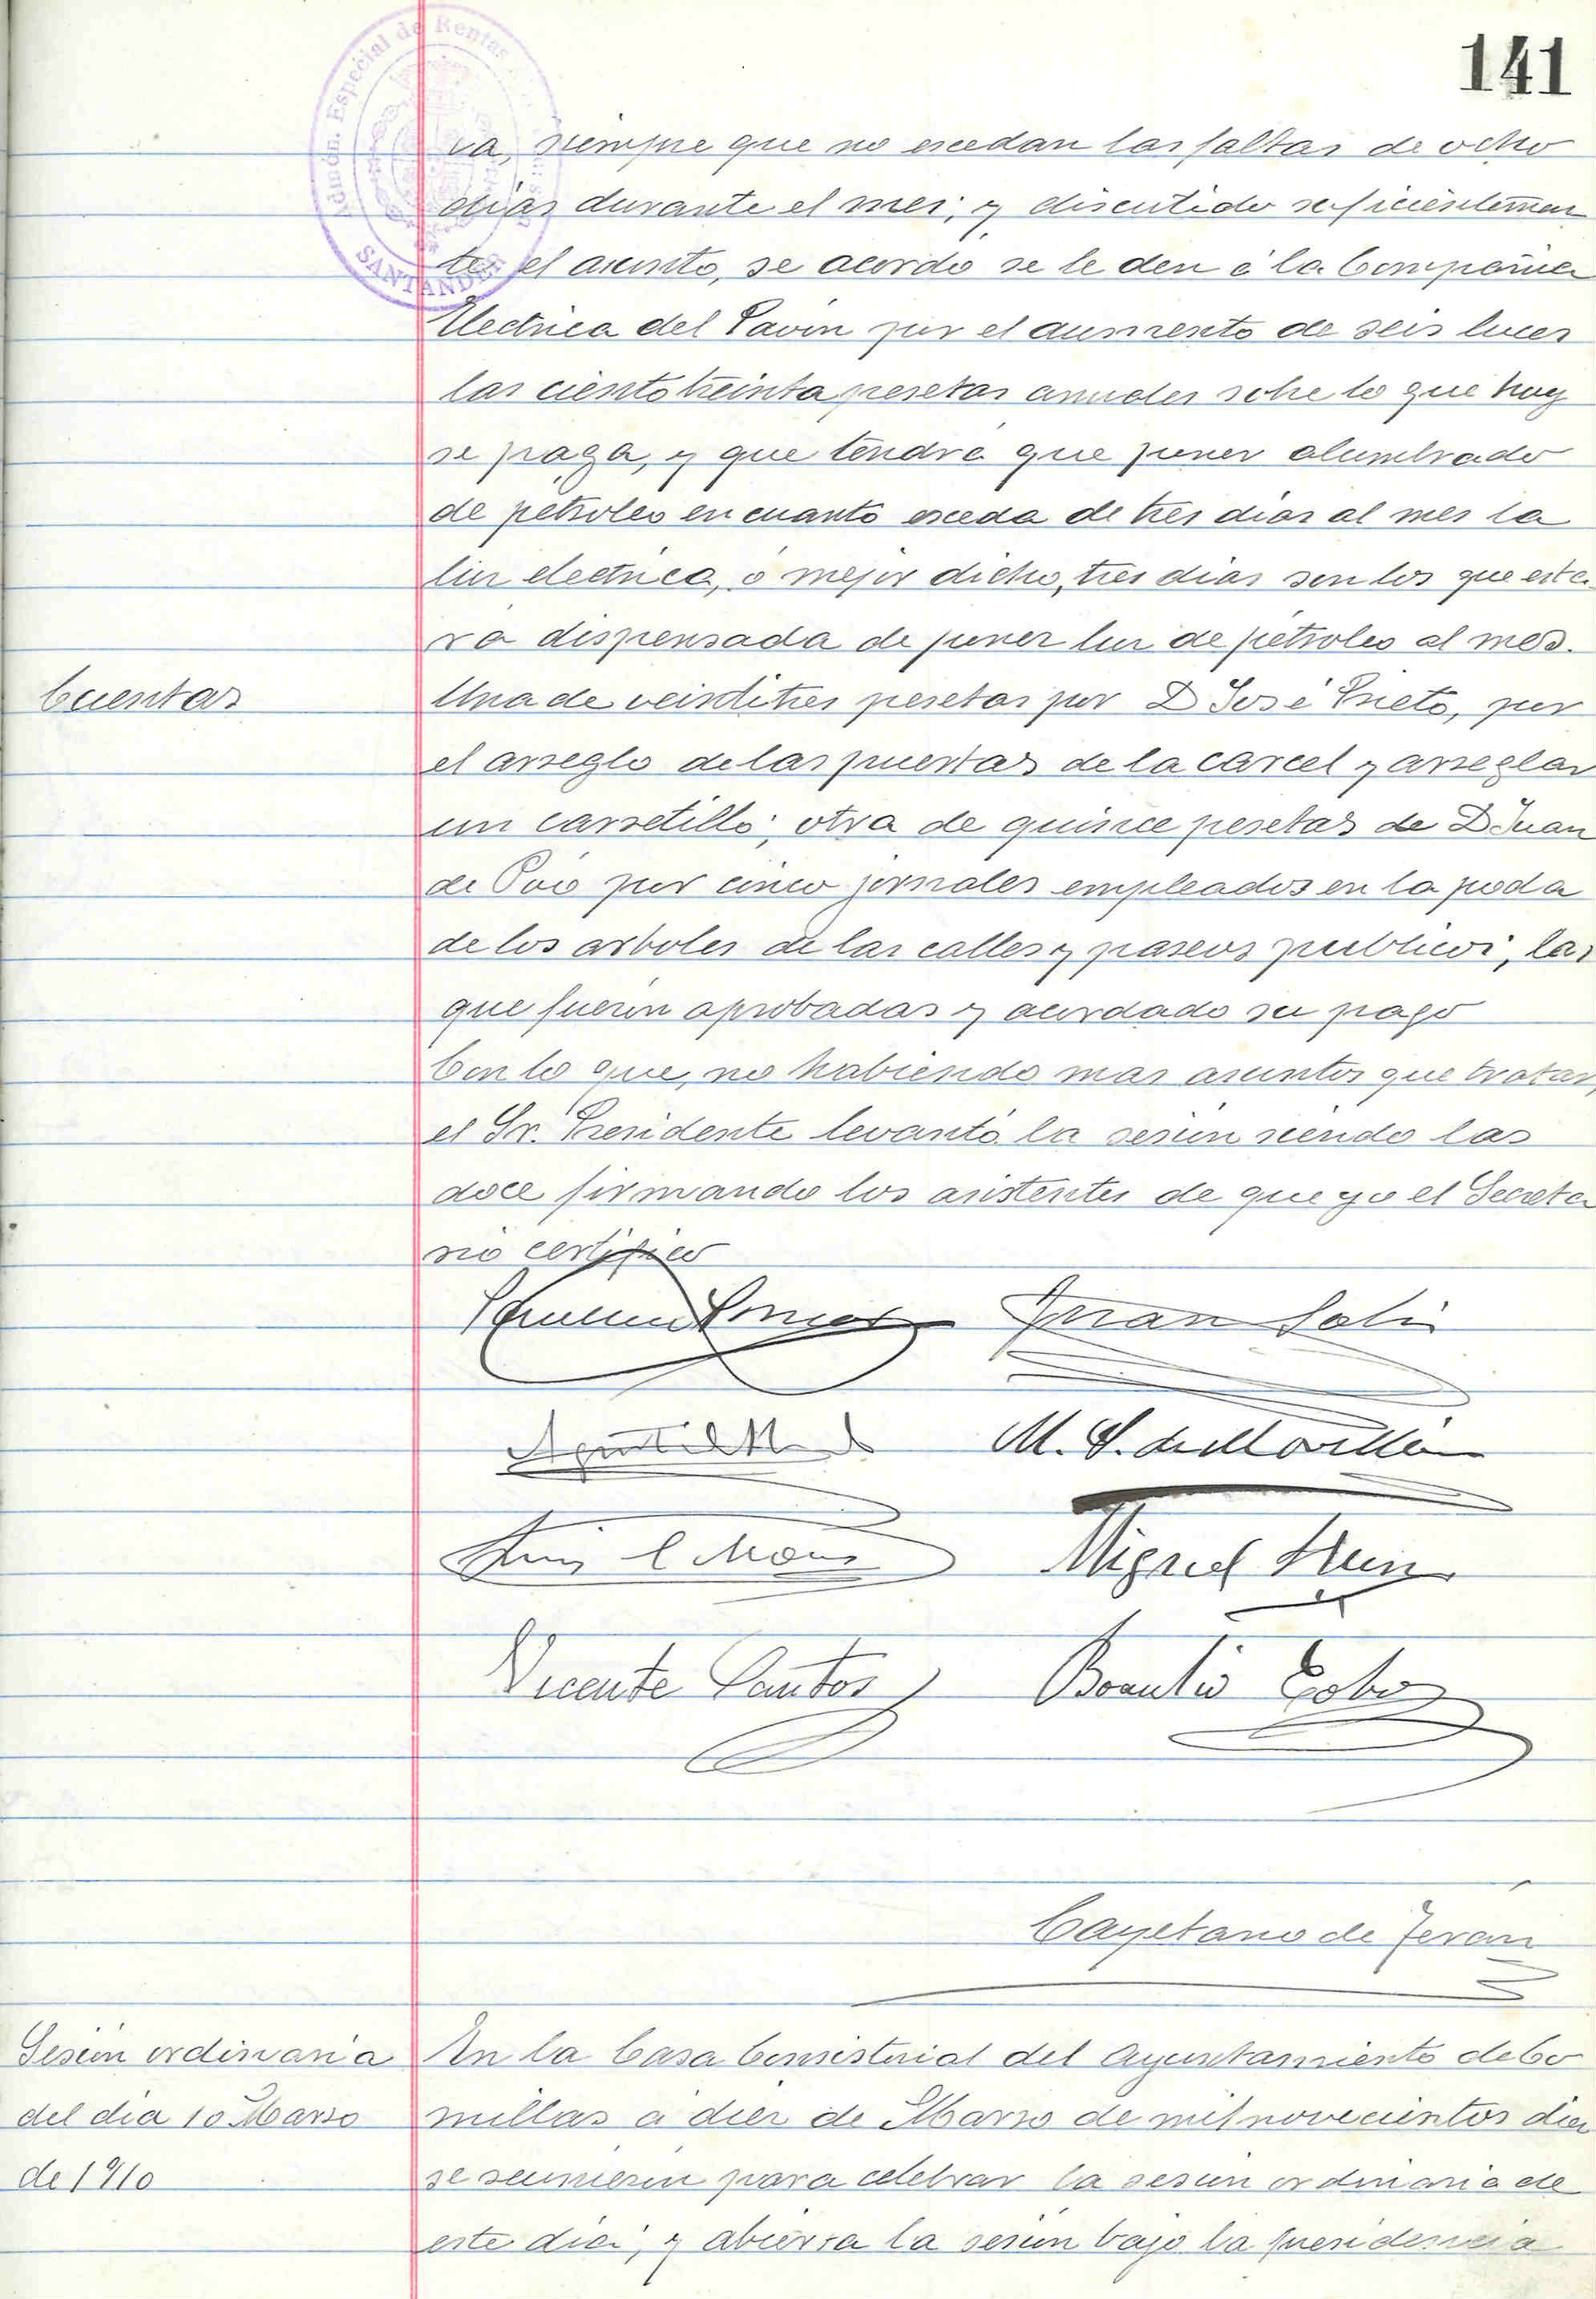 141
Admón. Especial de Rentas
SANTANDER
va, siempre que no escedan las faltas de ocho
dias durante el mes; y discutido suficientemen
te el asunto, se acordó se le den á la Compañia
Electrica del Savin por el aumento de seis luces
las ciento treinta pesetas anuales sobre lo que hoy
se paga, y que tendrá que poner alumbrado
de petroleo en cuanto esceda de tres dias al mes la
luz electrica, ó mejor dicho, tres dias son los que esta
rá dispensada de poner luz de petroleo al mes.
Cuentas
Una de veintitres pesetas por D José Prieto, por
el arreglo de las puertas de la carcel y arreglar
un carretillo; otra de quince pesetas de D Juan
de Poó por cinco jornales empleados en la poda
de los arboles de las calles y paseos publicos, las
que fueron aprobadas y acordado su pago
Con lo que, no habiendo mas asuntos que tratar,
el Sr. Presidente levantó la sesion siendo las
doce firmando los asistentes de que yo el Secreta
rio certifico
Juan
M. S. de Movellán
Luis
Miguel
Vicente Santos
Braulio Cobo
Cayetano de Terán
Sesion ordinaria
del dia 10 Marzo
de 1910
En la Casa Consistorial del Ayuntamiento de Co
millas á diez de Marzo de mil novecientos diez
se reunieron para celebrar la sesion ordinaria de
este dia; y abierta la sesion bajo la presidencia